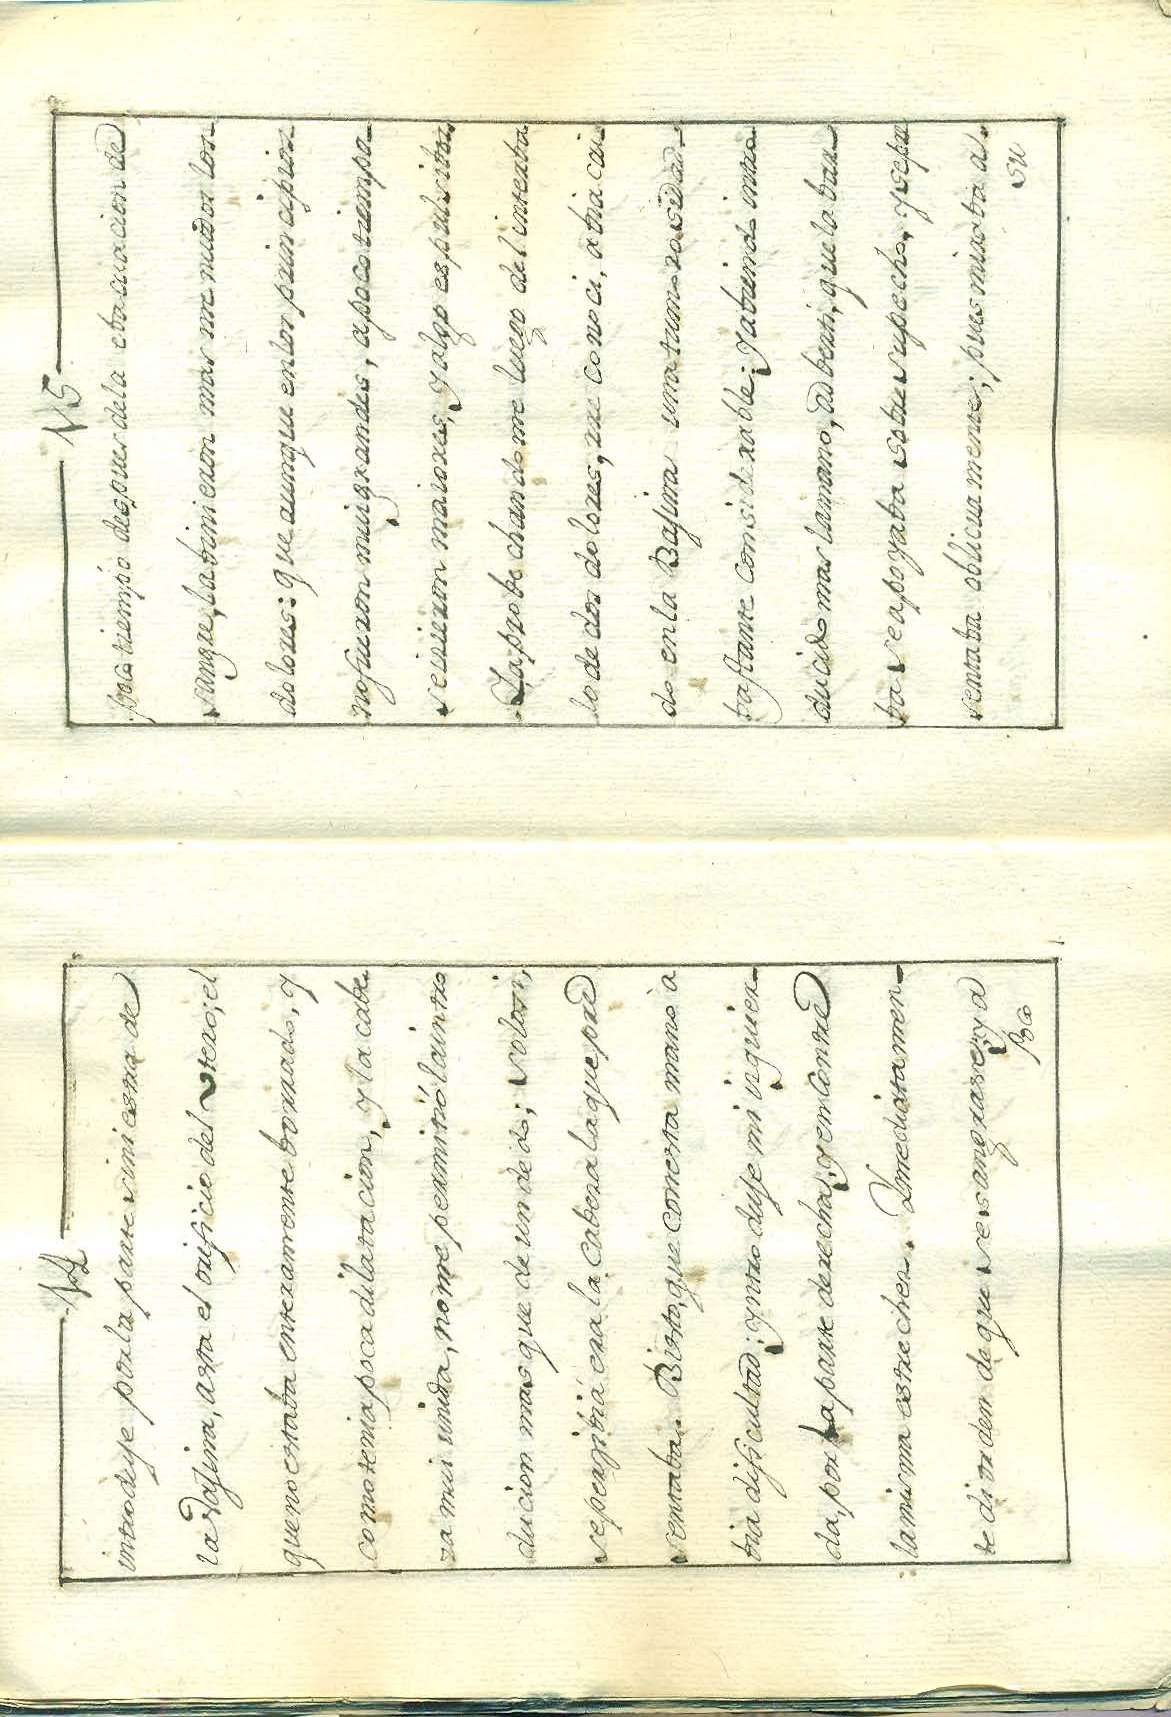 N4
introduje por la parte siniestra de
la Vajina, asta el orificio del Utero; el
que no estaba enteramente borrado, y
como tenia poca dilatacion, y la cabe
za mui unida, no me permitió la intro
ducion mas que de un dedo; solam,
se persibia era la Cabeza la que pre
sentaba. Bisto, que con esta mano a
bia dificultad; yntroduje mi izquier
da, por la parte derecha; y encontre
la misma estreches. Ymediatamen
te di orden de que se sangrase; y a
po
N5
poco tiempo despues de la ebacuacion de
sangre, la binieron mas menudos los
dolores: que aunque en los principios
no fueron mui grandes, a poco tiempo
se isieron maiores, y algo espulsibos
Yaprobechandome luego del interba
lo de dos dolores, me conoci, abia cai
do en la Bajina una tumorosidad
bastante considerable; y abiendo intro
ducido mas la mano, adberti, que la bra
ba se apoyaba sobre su pecho, y se pre
sentaba oblicuamente; pues miraba a
su